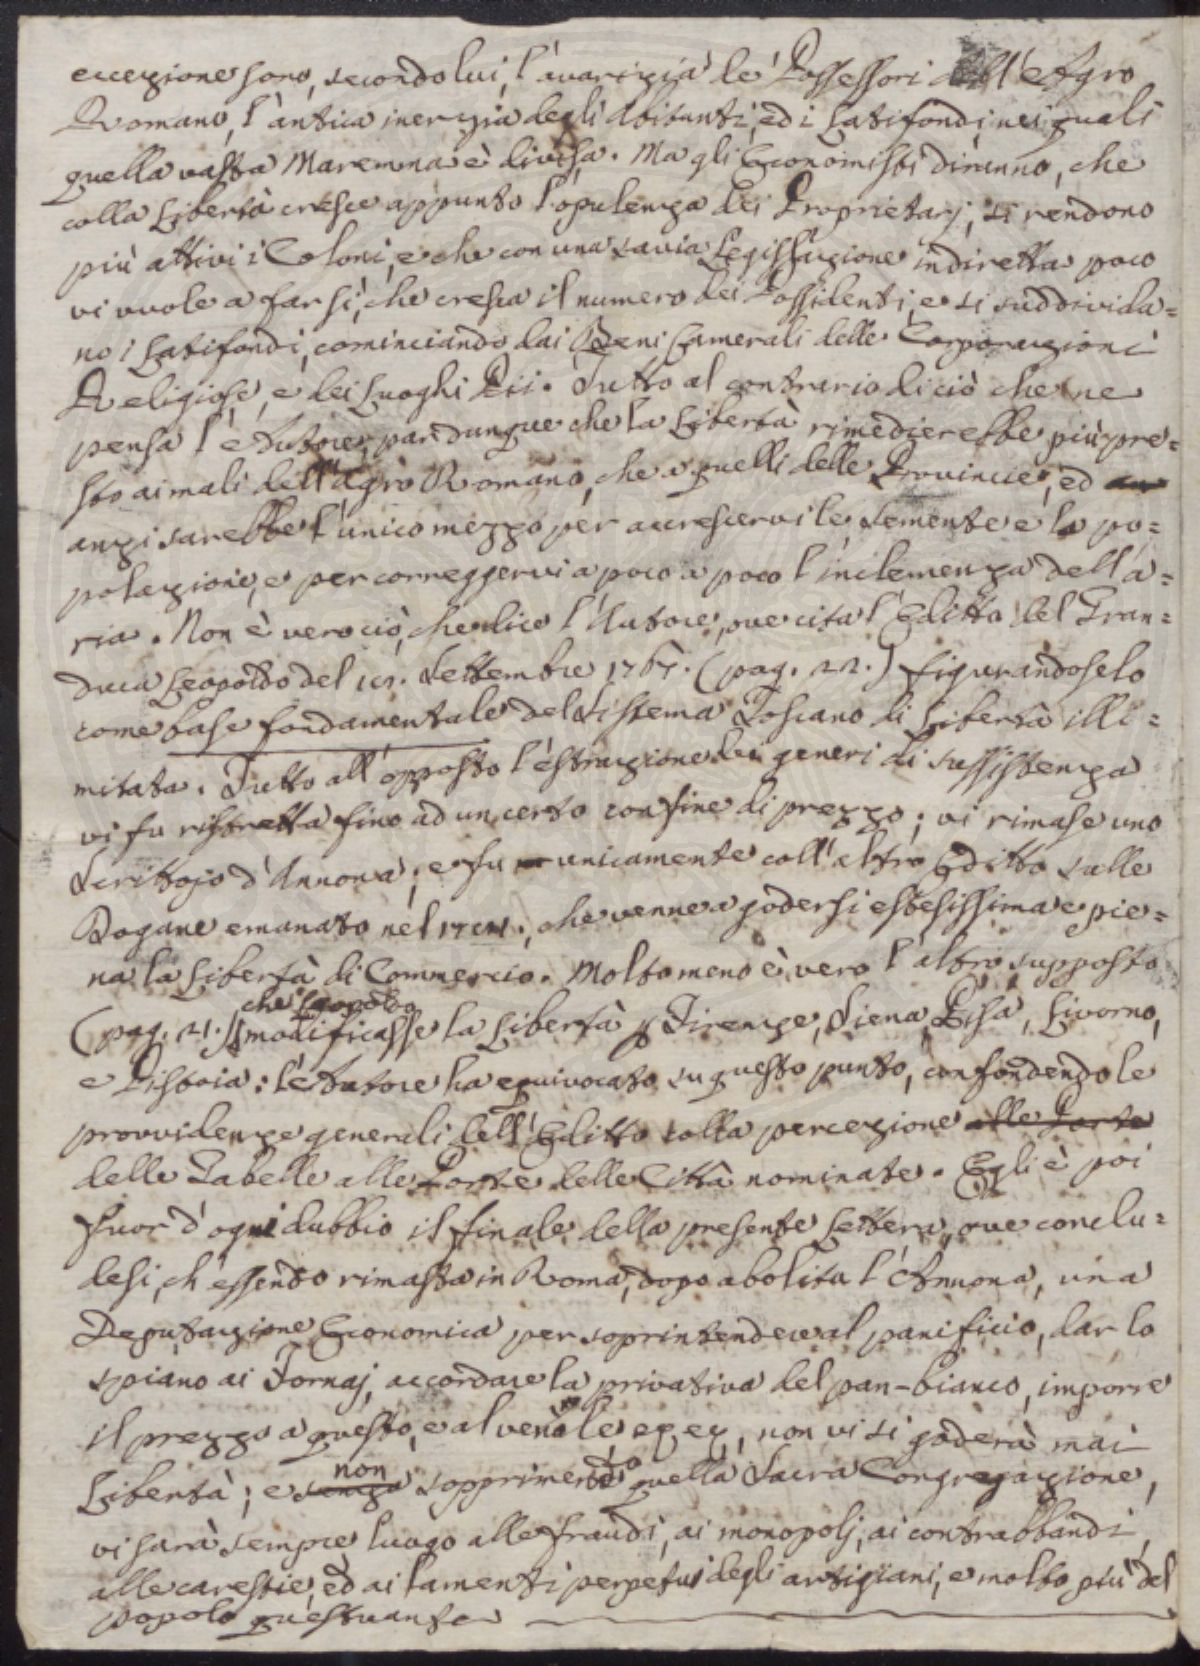 eccezione sono, secondo lui, l'avarizia de' Possessori dell'Agro
Romano, l'antica inerzia degli Abitanti, ed i Latifondi, nei quali
quella vasta Maremma è divisa. Ma gli Economisti diranno, che
colla Libertà cresce appunto l'opulenza dei Proprietarj, si rendono
più attivi i Coloni, e che con una savia Legislazione indiretta poco
vi vuole a far sì, che cresca il numero dei Possidenti, e si suddivida=
no i Latifondi, cominciando dai Beni Camerali delle Corporazioni
Religiose, e dei Luoghi Pii. Tutto al contrario di ciò che ne
pensa l'Autore, par dunque che la Libertà rimedierebbe più pre=
sto ai mali dell'Agro Romano, che a quelli delle Provincie, ed
anzi sarebbe l'unico mezzo per accrescervi le Semente e la po=
polazione, e per correggervi a poco a poco l'inclemenza dell'a=
ria. Non è vero ciò, che dice l'Autore, ove cita l'Editto del Gran=
duca Leopoldo del Settembre 1767. (pag. 22.) figurandoselo
come base fondamentale del Sistema Toscano di Libertà illi=
mitata. Tutto all'opposto l'estrazione dei generi di sussistenza
vi fu ristretta fino ad un certo confine di prezzo; vi rimase uno
Scrittojo d'Annona; e fu unicamente coll'altro Editto sulle
Dogane emanato nel, che venne a godersi estesissima e pie=
na la Libertà di Commercio. Molto meno è vero l'altro supposto
che Leopoldo
(pag. 21.) modificasse la Libertà p Firenze, Siena, Pisa, Livorno,
e Pistoia: l'Autore ha equivocato su questo punto, confondendo le
provvidenze generali dell'Editto colla percezione alle Porte
delle Gabelle alle Porte delle Città nominate. Egli è poi
fuor d'ogni dubbio il finale della presente Lettera, ove conclu=
desi, ch'essendo rimasta in Roma, dopo abolita l'Annona, una
Deputazione Economica per soprintendere al panificio, dar lo
spiano ai Fornaj, accordare la privativa del pan-bianco, imporre
il prezzo a questo, e al venale, ec. ec., non vi si goderà mai
non
Libertà; e senza sopprimendo quella Sacra Congregazione,
vi sarà sempre luogo alle fraudi, ai monopolj, ai contrabbandi,
alle carestie, ed ai lamenti perpetui degli artigiani, e molto più del
popolo questuante